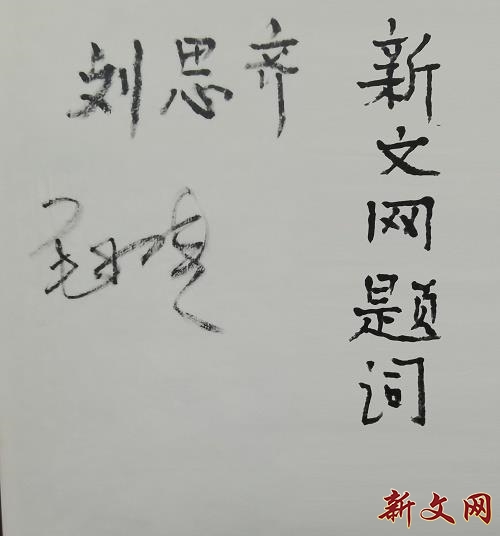 新文网题词
刘思齐
新文网